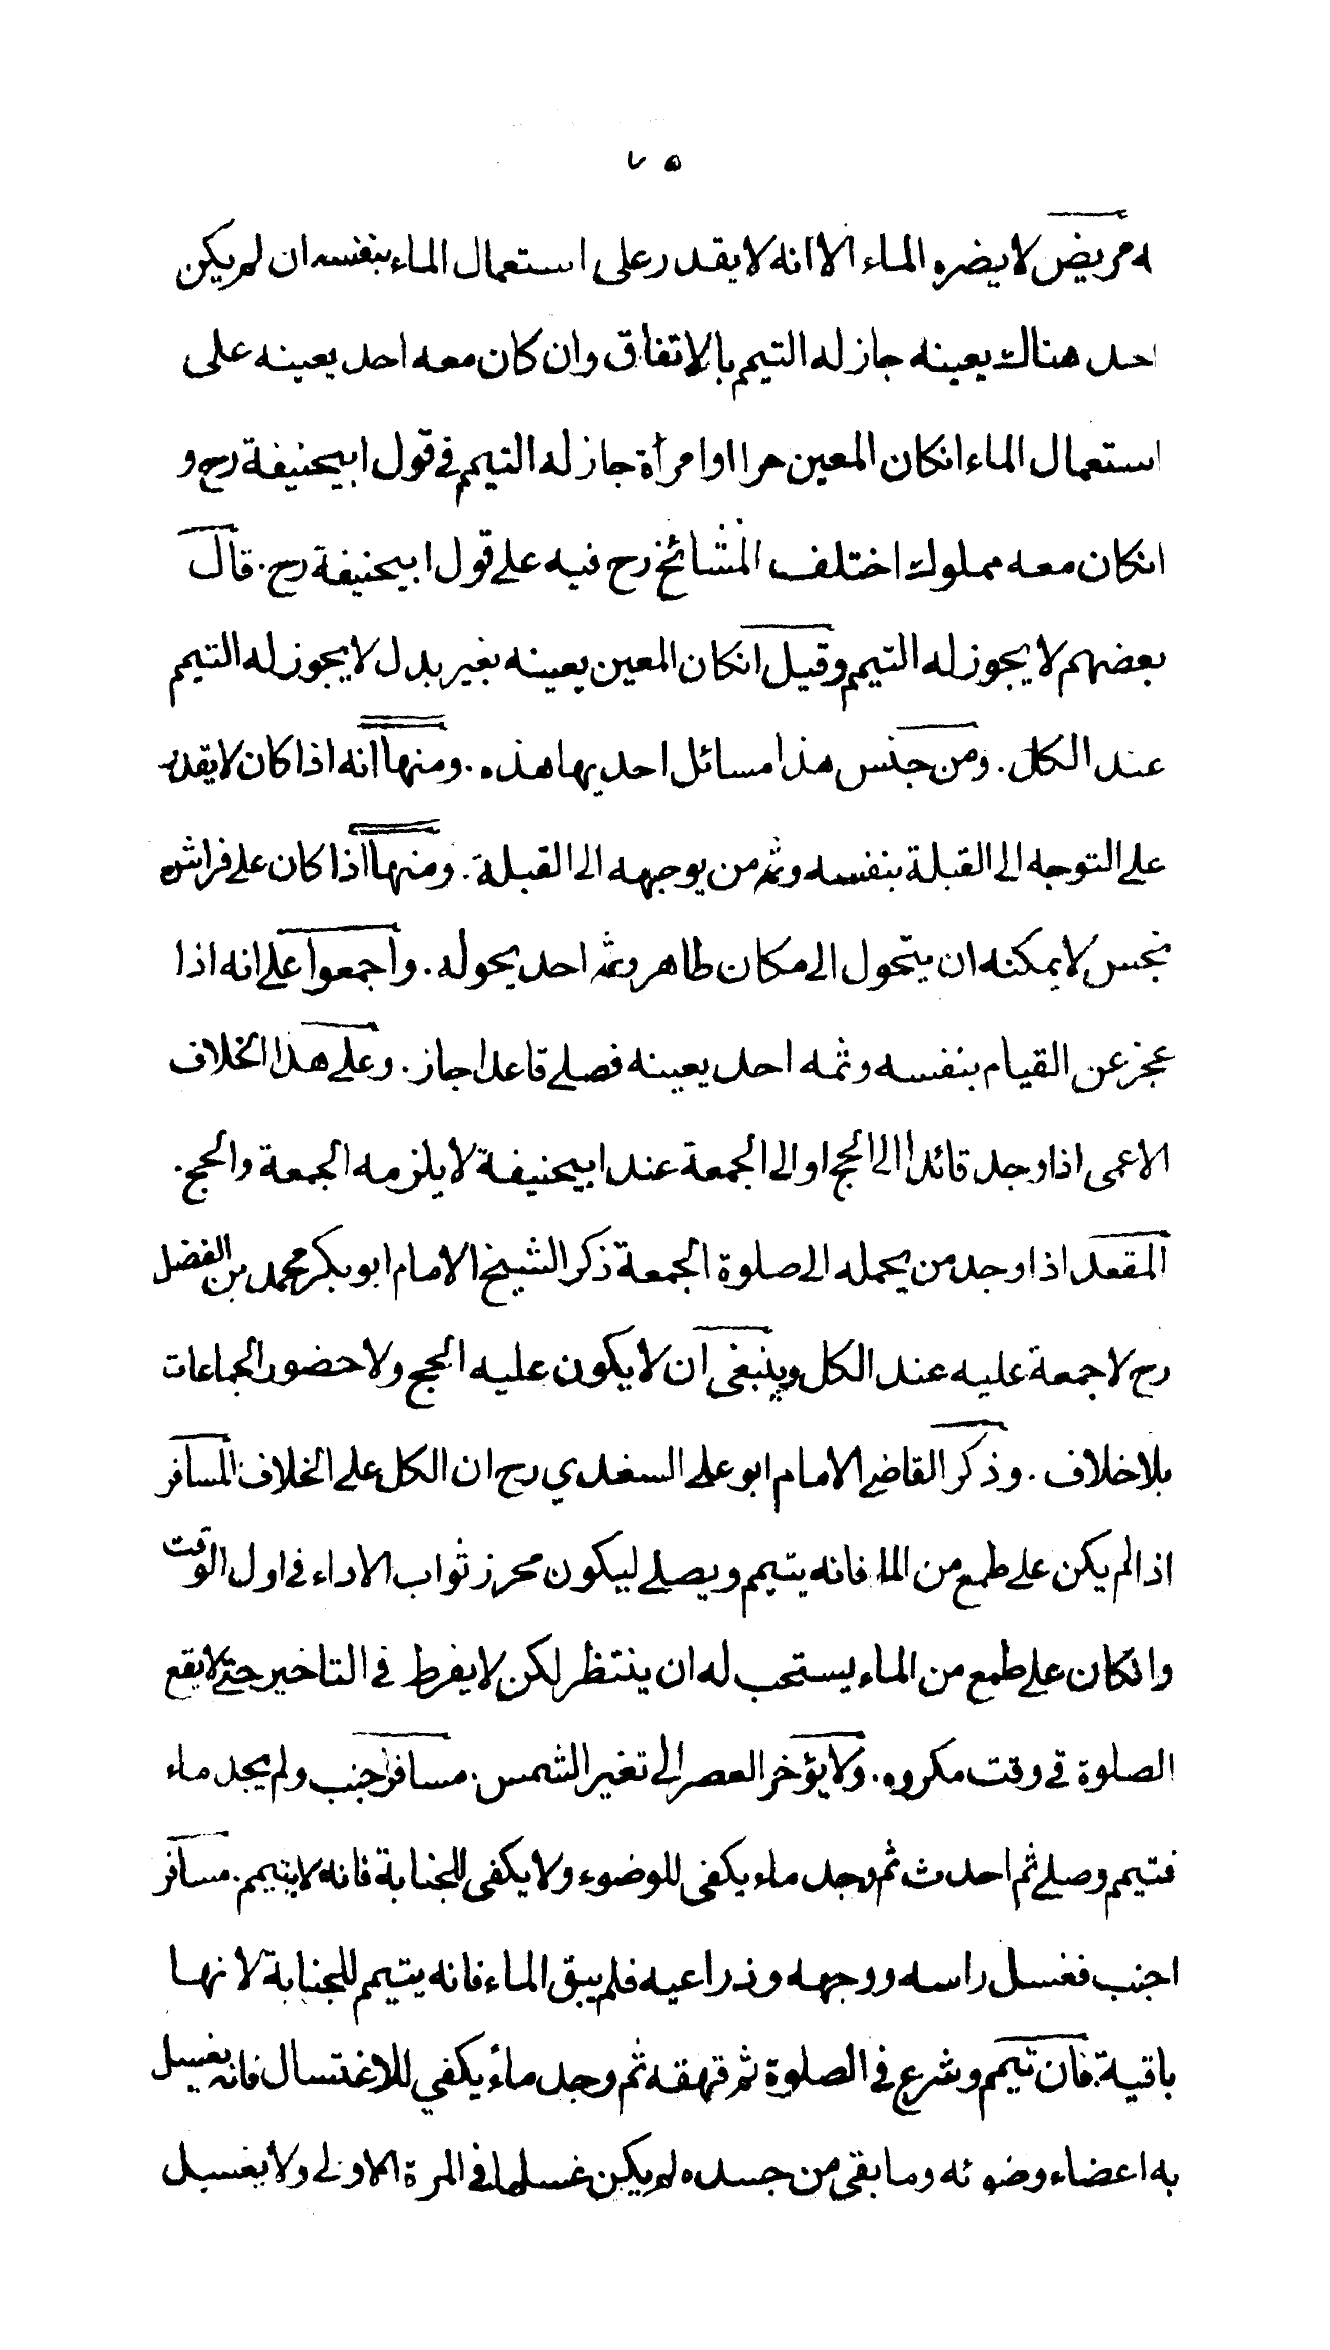 ٧٥
له مريض لا يضره الماء الا انه لا يقدر على استعمال الماء بنفسه ان لم يكن
احد هناك يعينه جاز له التيمم بالاتفاق وان كان معه احد يعينه على
استعمال الماء انكان المعين حرا او امرأة جاز له التيمم في قول ابيحنيفة رح و
انكان معه مملوك اختلف المشائخ رح فيه على قول ابيحنيفة رح . قال
بعضهم لا يجوز له التيمم وقيل انكان المعين يعينه بغير بدل لا يجوز له التيمم
عند الكل . ومن جنس هذا مسائل احديها هذه . ومنها انه اذا كان لا يقدر
على التوجه الى القبلة بنفسه وثم من يوجهه الى القبلة . ومنها اذا كان على فراش
نجس لا يمكنه ان يتحول الى مكان طاهر وثمه احد يحوله . واجمعوا على انه اذا
عجز عن القيام بنفسه وثمه احد يعينه فصلى قاعدا جاز . وعلى هذا الخلاف
الاعمى اذا وجد قائدا الى الحج او الى الجمعة عند ابيحنيفة لا يلزمه الجمعة والحج .
المقعد اذا وجد من يحمله الى صلوة الجمعة ذكر الشيخ الامام ابو بكر محمد بن الفضل
رح لا جمعة عليه عند الكل وينبغي ان لا يكون عليه الحج ولا حضور الجماعات
بلا خلاف . وذكر القاضي الامام ابو علي السغدي رح ان الكل على الخلاف المسافر
اذا لم يكن على طمع من الماء فانه يتيمم ويصلي ليكون محرز ثواب الاداء في اول الوقت
وانكان على طمع من الماء يستحب له ان ينتظر لكن لا يفرط في التاخير حتى لا يقع
الصلوة في وقت مكروه . ولا يؤخر العصر الى تغير الشمس . مسافر اجنب ولم يجد ماء
فتيمم وصلى ثم احدث ثم وجد ماء يكفي للوضوء ولا يكفي للجنابة فانه لا يتيمم . مسافر
اجنب فغسل راسه ووجهه وذراعيه فلم يبق الماء فانه يتيمم للجنابة لانها
باقية . فان تيمم وشرع في الصلوة ثم قهقه ثم وجد ماء يكفي للاغتسال فانه يغسل
به اعضاء وضوئه وما بقي من جسده لم يكن غسلها في المرة الاولى ولا يغسل